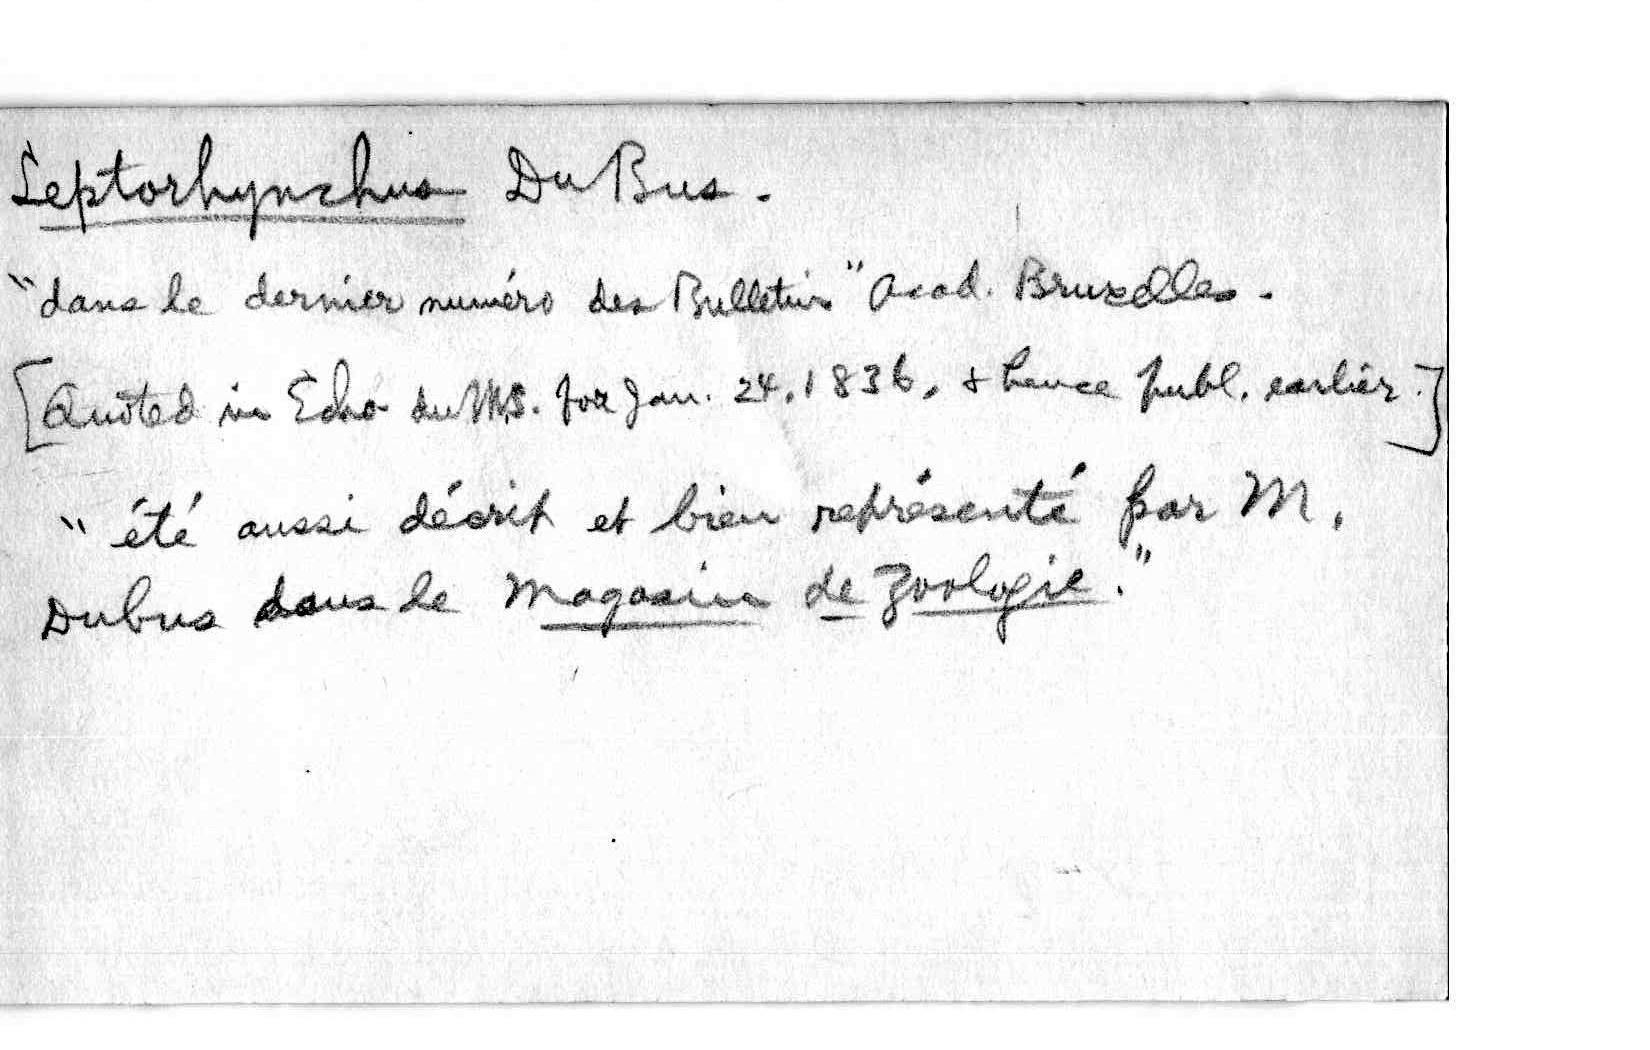 Leptorhynchus Du Bus.
"dans le dernier numéro des Bulletins" Acad. Bruxelles.
[Quoted in Echo du M.S. for Jan. 24, 1836, & hence publ. earlier.]
"été aussi décrit et bien représenté par M.
Dubus dans le Magasin de Zoologie."